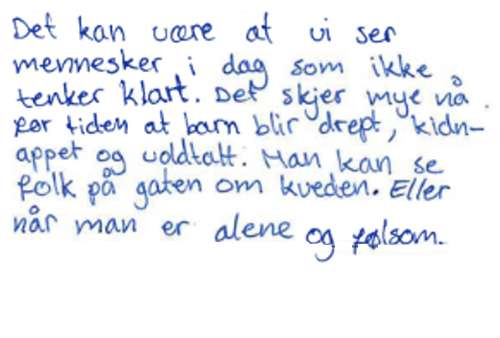 Det kan være at vi ser
mennesker i dag som ikke
tenker klart. Det skjer mye nå
før tiden at barn blir drept, kidn-
appet og voldtatt. Man kan se
folk på gaten om kveden. Eller
når man er alene og følsom.